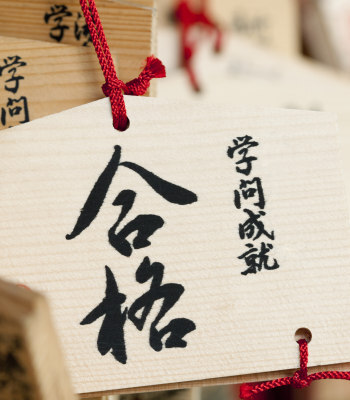 学問成就
合格
学問
学業